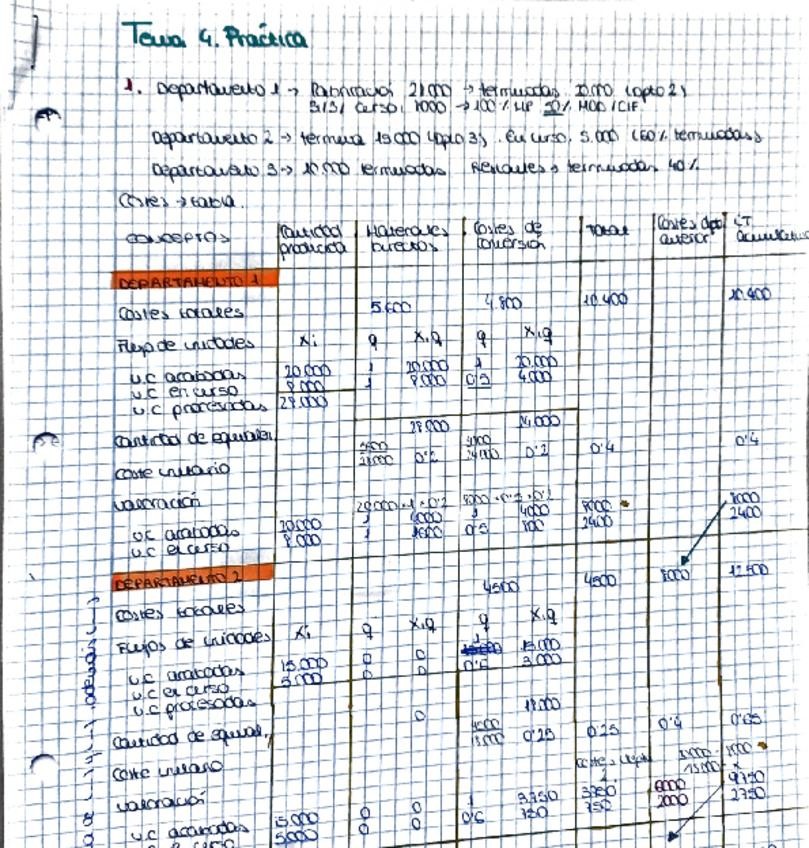 Tema 4. Práctica
1. Departamento 1 → Fabricación 28000 → terminadas 20.000 (dpto 2)
8000 → 100% MP 50% MOD/CIF.
Departamento 2 → termina 15000 (dpto 3), En curso 5.000 (60% terminadas)
Departamento 3 → 10.000 terminadas Restantes → terminadas 40%
Costes → tabla.
CONCEPTOS Cantidad producida Materiales directos Costes de conversión TOTAL Costes dpto anterior CT acumulativo
DEPARTAMENTO 1
Costes totales 5.600 4.800 10.400 10.400
Flujo de unidades Xi q Xiq q Xiq
u.c acabadas 20.000 1 20.000 1 20.000
u.c en curso 8.000 1 8.000 0'5 4.000
u.c procesadas 28.000
Cantidad de equival. 28.000 24.000
Coste unitario 5600/28000 0'2 4800/24000 0'2 0'4 0'4
Valoración
u.c acabadas 20.000 1 4000 1 4000 8000 8000
u.c en curso 8.000 1 1600 0'5 800 2400 2400
DEPARTAMENTO 2
Costes totales 4500 4500 8000 12.500
Flujos de unidades Xi q Xiq q Xiq
u.c acabadas 15.000 0 0 1 15.000
u.c en curso 5.000 0 0 0'6 3.000
u.c procesadas
Cantidad de equival. 0 18.000
Coste unitario 4500/18000 0'25 0'25 0'4 0'65
Valoración
u.c acabadas 15.000 0 0 1 3.750 3750 6000 9750
u.c en curso 5000 0 0 0'6 750 750 2000 2750